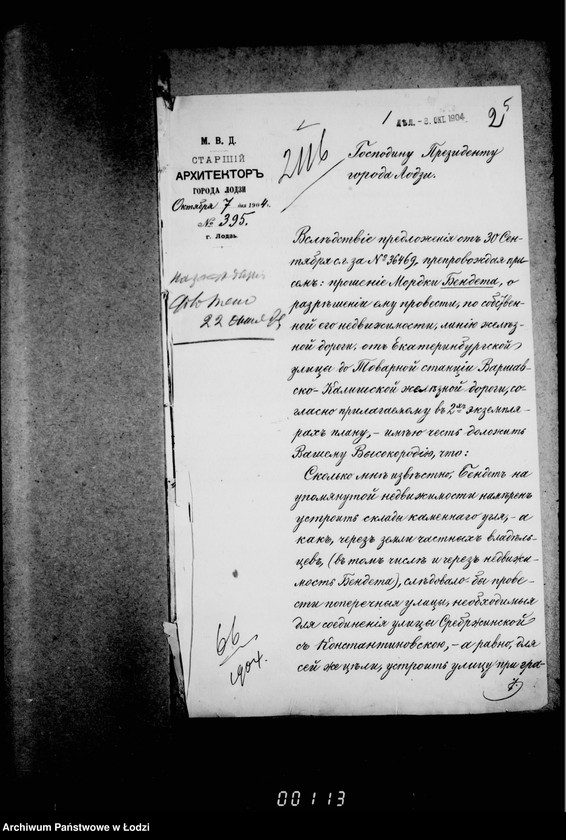 М. В. Д.
СТАРШІЙ
АРХИТЕКТОРЪ
ГОРОДА ЛОДЗИ
Октября 7 дня 1904 г.
№ 395.
г. Лодзь.
22
66
1904.
1
ДѢЛ. - 8. ОКТ. 1904
25
Господину Президенту
города Лодзи.
Вслѣдствіе предложенія отъ 30 Сен-
тября с.г. за № 36469, препровождая при
семъ: прошеніе Мордки Бендета, о
разрѣшеніи ему провести, по собствен-
ной его недвижимости, линію желѣз-
ной дороги, отъ Екатеринбургской
улицы до Товарной станціи Варшав-
ско-Калишской желѣзной дороги, со-
гласно прилагаемому въ 2хъ экземпля-
рахъ плану, - имѣю честь доложить
Вашему Высокородію, что:
Сколько мнѣ извѣстно, Бендетъ на
упомянутой недвижимости намѣренъ
устроить склады каменнаго угля, - а
какъ, черезъ земли частныхъ владѣль-
цевъ, (въ томъ числѣ и черезъ недвижи-
мость Бендета), слѣдовало-бы прове-
сти поперечныя улицы, необходимыя
для соединенія улицы Сребржинской
съ Константиновскою, - а равно, для
сей же цѣли, устроить улицу при гра-
00113
Archiwum Państwowe w Łodzi